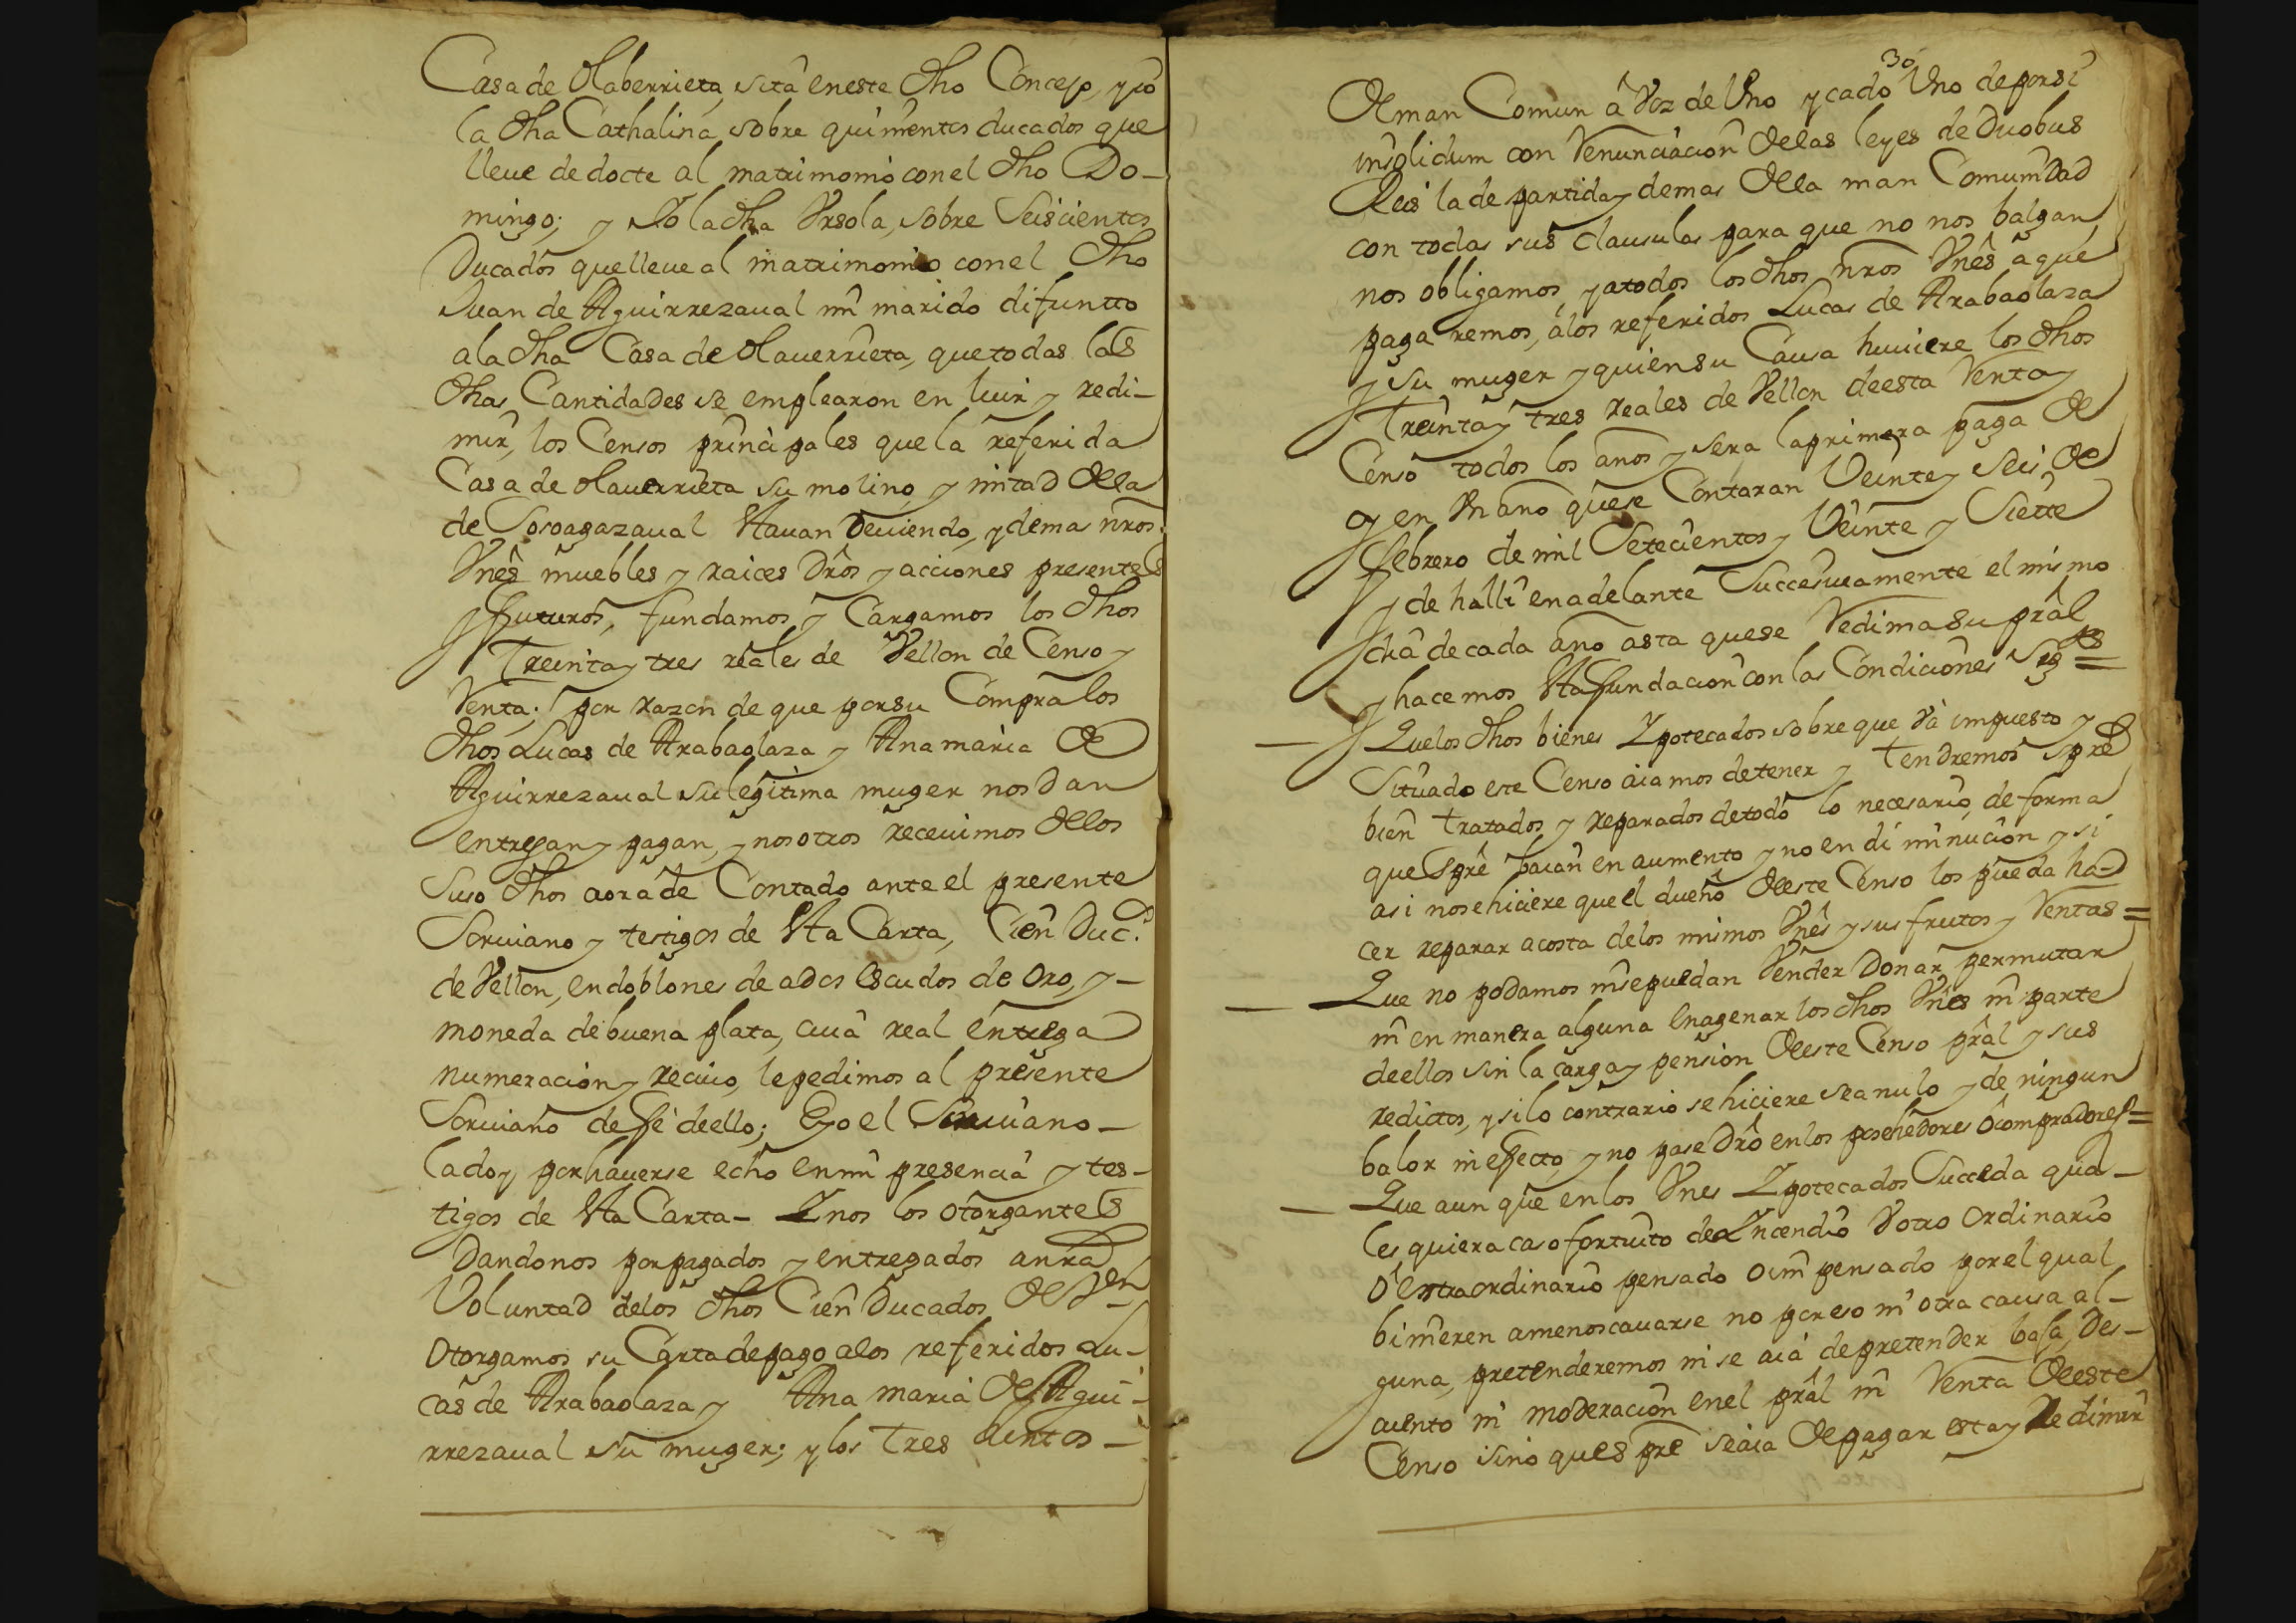 Casa de olaberrieta, sita en este dho Concejo, y io
la dha Cathalina, sobre quinientos ducados que
lleue de docte al matrimonio con el dho Do-
mingo; y Io la dha Vrsola, sobre Seiscientos
Ducados que lleue al matrimonio con el dho
Juan de Aguirrezaual mi marido difuntto
a la dha Casa de olauerrieta, que todas las
dhas Cantidades se emplearon en luir y redi-
mir, los Censos principales que la referida
Casa de olauerrieta su molino, y mitad de la
de Soroagazaual Hauan Deuiendo, y demas nros
Vnes muebles y raices Dros y acciones presentes
y futuros, fundamos y Cargamos los dhos
Treinta y tres reales de Vellon de Censo y
Venta; por razon de que por su Compra los
dhos Lucas de Arabaolaza y Ana maria de
Aguirrezaual su legitima muger nos dan
entregan y pagan, y nosotros receuimos de los
Suso dhos aora de Contado ante el presente
Scriuano y testigos de Sta Carta, Cien Duc.s
de Vellon, en doblones de a dos escudos de oro, y -
moneda de buena plata, cuia real entrega
numeracion y reciuo, le pedimos al presente
Scriuano de fe de ello; E yo el Scriuano -
la doy, por hauerse echo en mi presencia y tes-
tigos de Sta Carta - Y nos los otorgantes
Dandonos por pagados y entregados a nra
Voluntad de los dhos Cien Ducados de Von
otorgamos su Carta de pago a los referidos Lu-
cas de Arabaolaza y Ana maria de Agui-
rrezaual su muger; y los tres Juntos -
30
De man Comun â Voz de Vno y cado Vno de por si
insolidum con Renunciacion de las leyes de Duobus
Reis la de partida y demas de la man Comunidad
con todas sus clausulas para que no nos balgan
nos obligamos, y a todos los dhos nros Vnes a que
pagaremos, a los referidos Lucas de Arabaolaza
y su muger y quien su Causa huuiere los dhos
Treinta y tres reales de Vellon de esta Venta y
Censo todos los anos y sera la primera paga de
oy en Vn ano que se Contaran Veinte y Seis de
febrero de mil Setecientos y Veinte y Siette
y de halli en adelante Succesiuamente el mismo
dia de cada ano asta que se Redima su pral
y hacemos Sta fundacion con las Condiciones Sigtes =
Que los dhos bienes Ypotecados sobre que Va impuesto y
Situado este Censo aiamos de tener y tendremos spre
bien tratados, y reparados de todo lo necesario, de forma
que spre baian en aumento y no en diminucion y si
asi no se hiciere que el dueño de este Censo los pueda ha-
cer reparar a costa de los mismos Vnes y sus frutos y Rentas =
Que no podamos ni se puedan Vender Donar permutar
ni en manera alguna enagenar los dhos Vnes ni parte
de ellos sin la carga y pension de este Censo pral y sus
redictos, y si lo contrario se hiciere sea nulo y de ningun
balor ni efecto, y no pase Dro en los posehedores o compradores =
Que aun que en los Vnes Ypotecados Succeda qua-
les quiera caso fortuito de Yncendio V otro ordinario
o extraordinario pensado o im pensado por el qual
binieren a menoscauarse no por eso ni otra causa al-
guna, pretenderemos ni se aia de pretender baja, Des-
quento ni moderacion en el pral ni Renta de este
Censo sino que spre se aia de pagar esta y Redimir